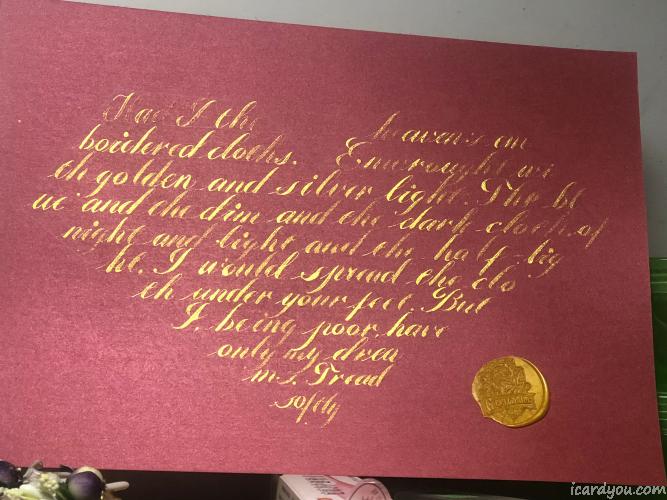 Had I the heavens em
boidered cloths. Enwrought wi
th golden and silver light. The bl
ue and the dim and the dark cloth of
night and light and the half-lig
ht. I would spread the clo
th under your feet. But
I, being poor, have
only my drea
ms. Tread
softly
icardyou.com